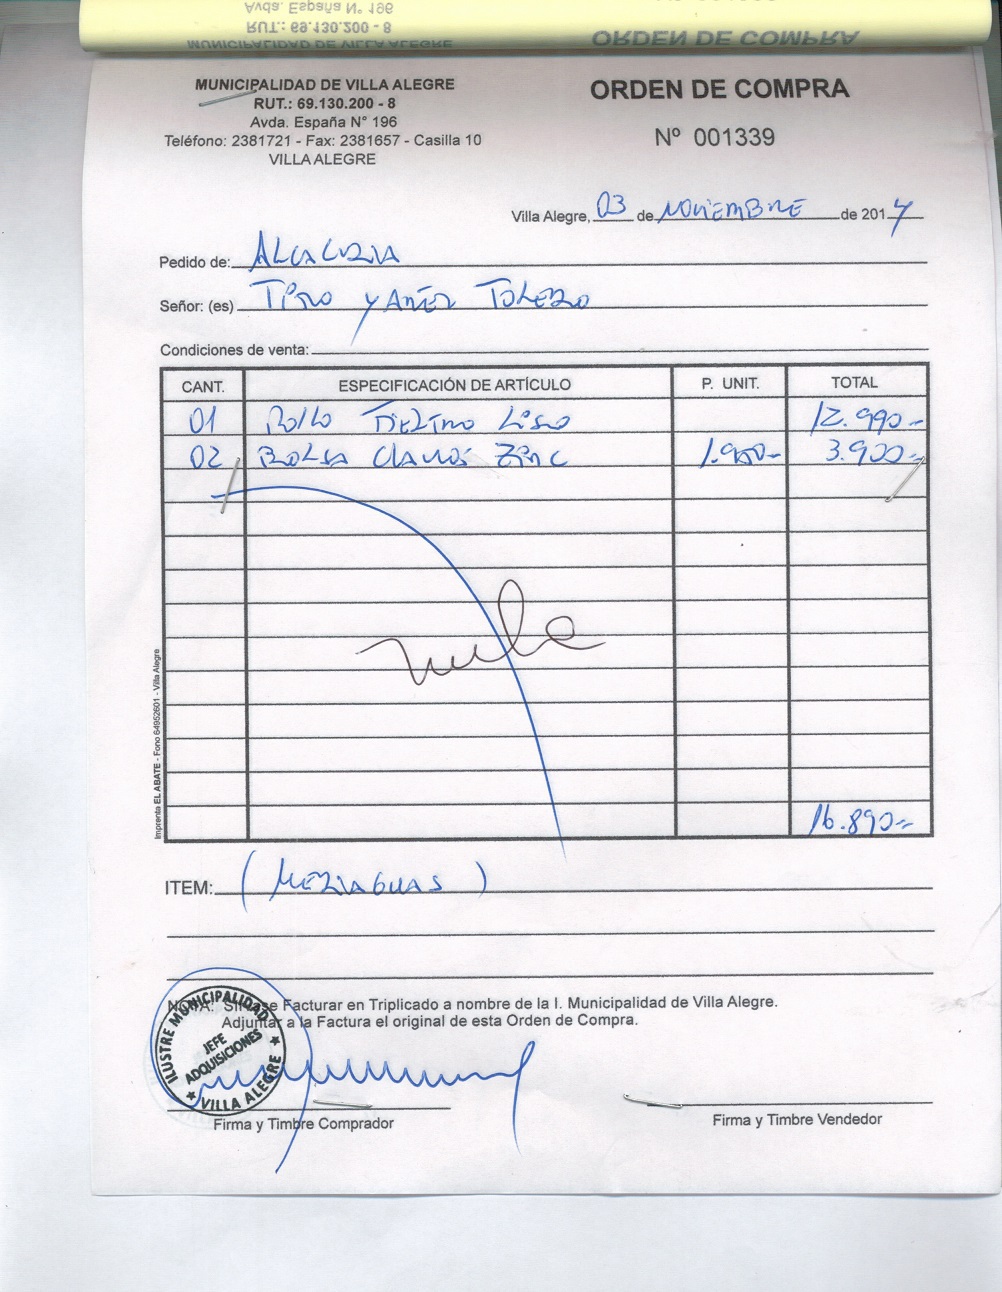 Avda. España N° 196
RUT.: 69.130.200 - 8
MUNICIPALIDAD DE VILLA ALEGRE
ORDEN DE COMPRA
MUNICIPALIDAD DE VILLA ALEGRE
RUT.: 69.130.200 - 8
Avda. España N° 196
Teléfono: 2381721 - Fax: 2381657 - Casilla 10
VILLA ALEGRE
ORDEN DE COMPRA
Nº 001339
Villa Alegre, 03 de NOVIEMBRE de 2014
Pedido de: ALCALDIA
Señor: (es) TITO YAÑEZ TOLEDO
Condiciones de venta:
CANT. ESPECIFICACIÓN DE ARTÍCULO P. UNIT. TOTAL
01 ROLLO FIELTRO LISO 12.990.-
02 BOLSA CLAVOS ZINC 1.950- 3.900.-
nula
16.890.-
Imprenta EL ABATE - Fono 64952601 - Villa Alegre
ITEM: (MEDIAGUAS)
NOTA: Sírvase Facturar en Triplicado a nombre de la I. Municipalidad de Villa Alegre.
Adjuntar a la Factura el original de esta Orden de Compra.
ILUSTRE MUNICIPALIDAD
JEFE
ADQUISICIONES
VILLA ALEGRE
Firma y Timbre Comprador
Firma y Timbre Vendedor